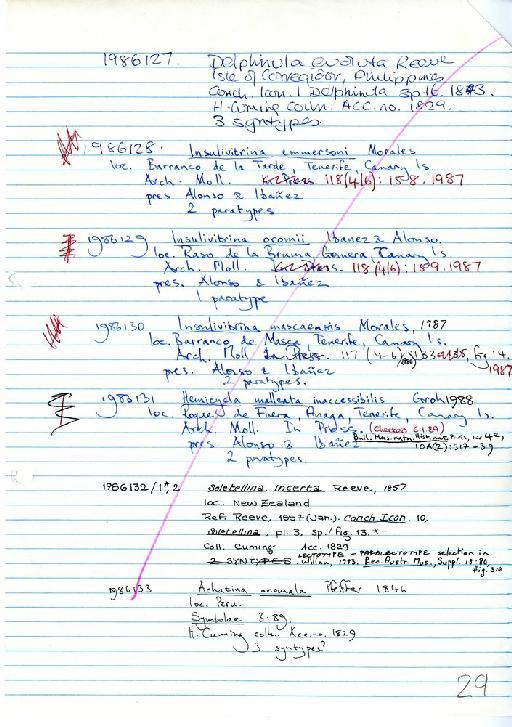 1986127 Delphinula euoluta Reeve
Isle of Corregidor, Philippines
Conch. Icon. 1 Delphinula sp. 16. 1843.
H. Cuming Colln. ACC. no. 1829.
3 syntypes.
1986128 Insulivitrina emmersoni Morales
loc. Barranco de la Tarde, Tenerife, Canary Is.
Arch. Moll. 118(4/6): 158, 1987
pres Alonso & Ibañez
2 paratypes
1986129 Insulivitrina oromii Ibanez & Alonso.
loc. Raso de la Bruma, Gomera, Canary Is.
Arch. Moll. 118(4/6): 1987
pres. Alonso & Ibañez
1 paratype
1986130 Insulivitrina mascaensis Morales, 1987
loc. Barranco de Masca, Tenerife, Canary Is.
Arch. Moll. In Press. fig. 4. 1987
pres. Alonso & Ibañez
2 paratypes.
1986131 Hemicycla malleata inaccessibilis Groh 1988
loc. Roques de Fuera, Anaga, Tenerife, Canary Is.
Arch. Moll. In Press.
pres Alonso & Ibañez
2 paratypes.
1986132/1+2 Soletellina incerta Reeve, 1857
loc. New Zealand
Ref: Reeve, 1857 (Jan.). Conch Icon. 10,
Soletellina, pl. 3, sp./fig. 13.
Coll. Cuming. Acc. 1829
2 SYNTYPES LECTOTYPE + PARALECTOTYPE selection in Willan, 1993. Rec. Austr. Mus., Suppl. 18:
1986133 Achatina Pfeiffer 1846
loc. Peru.
Symbolae 3:89.
H. Cuming coln. Acc. no. 1829
3 syntypes?
29